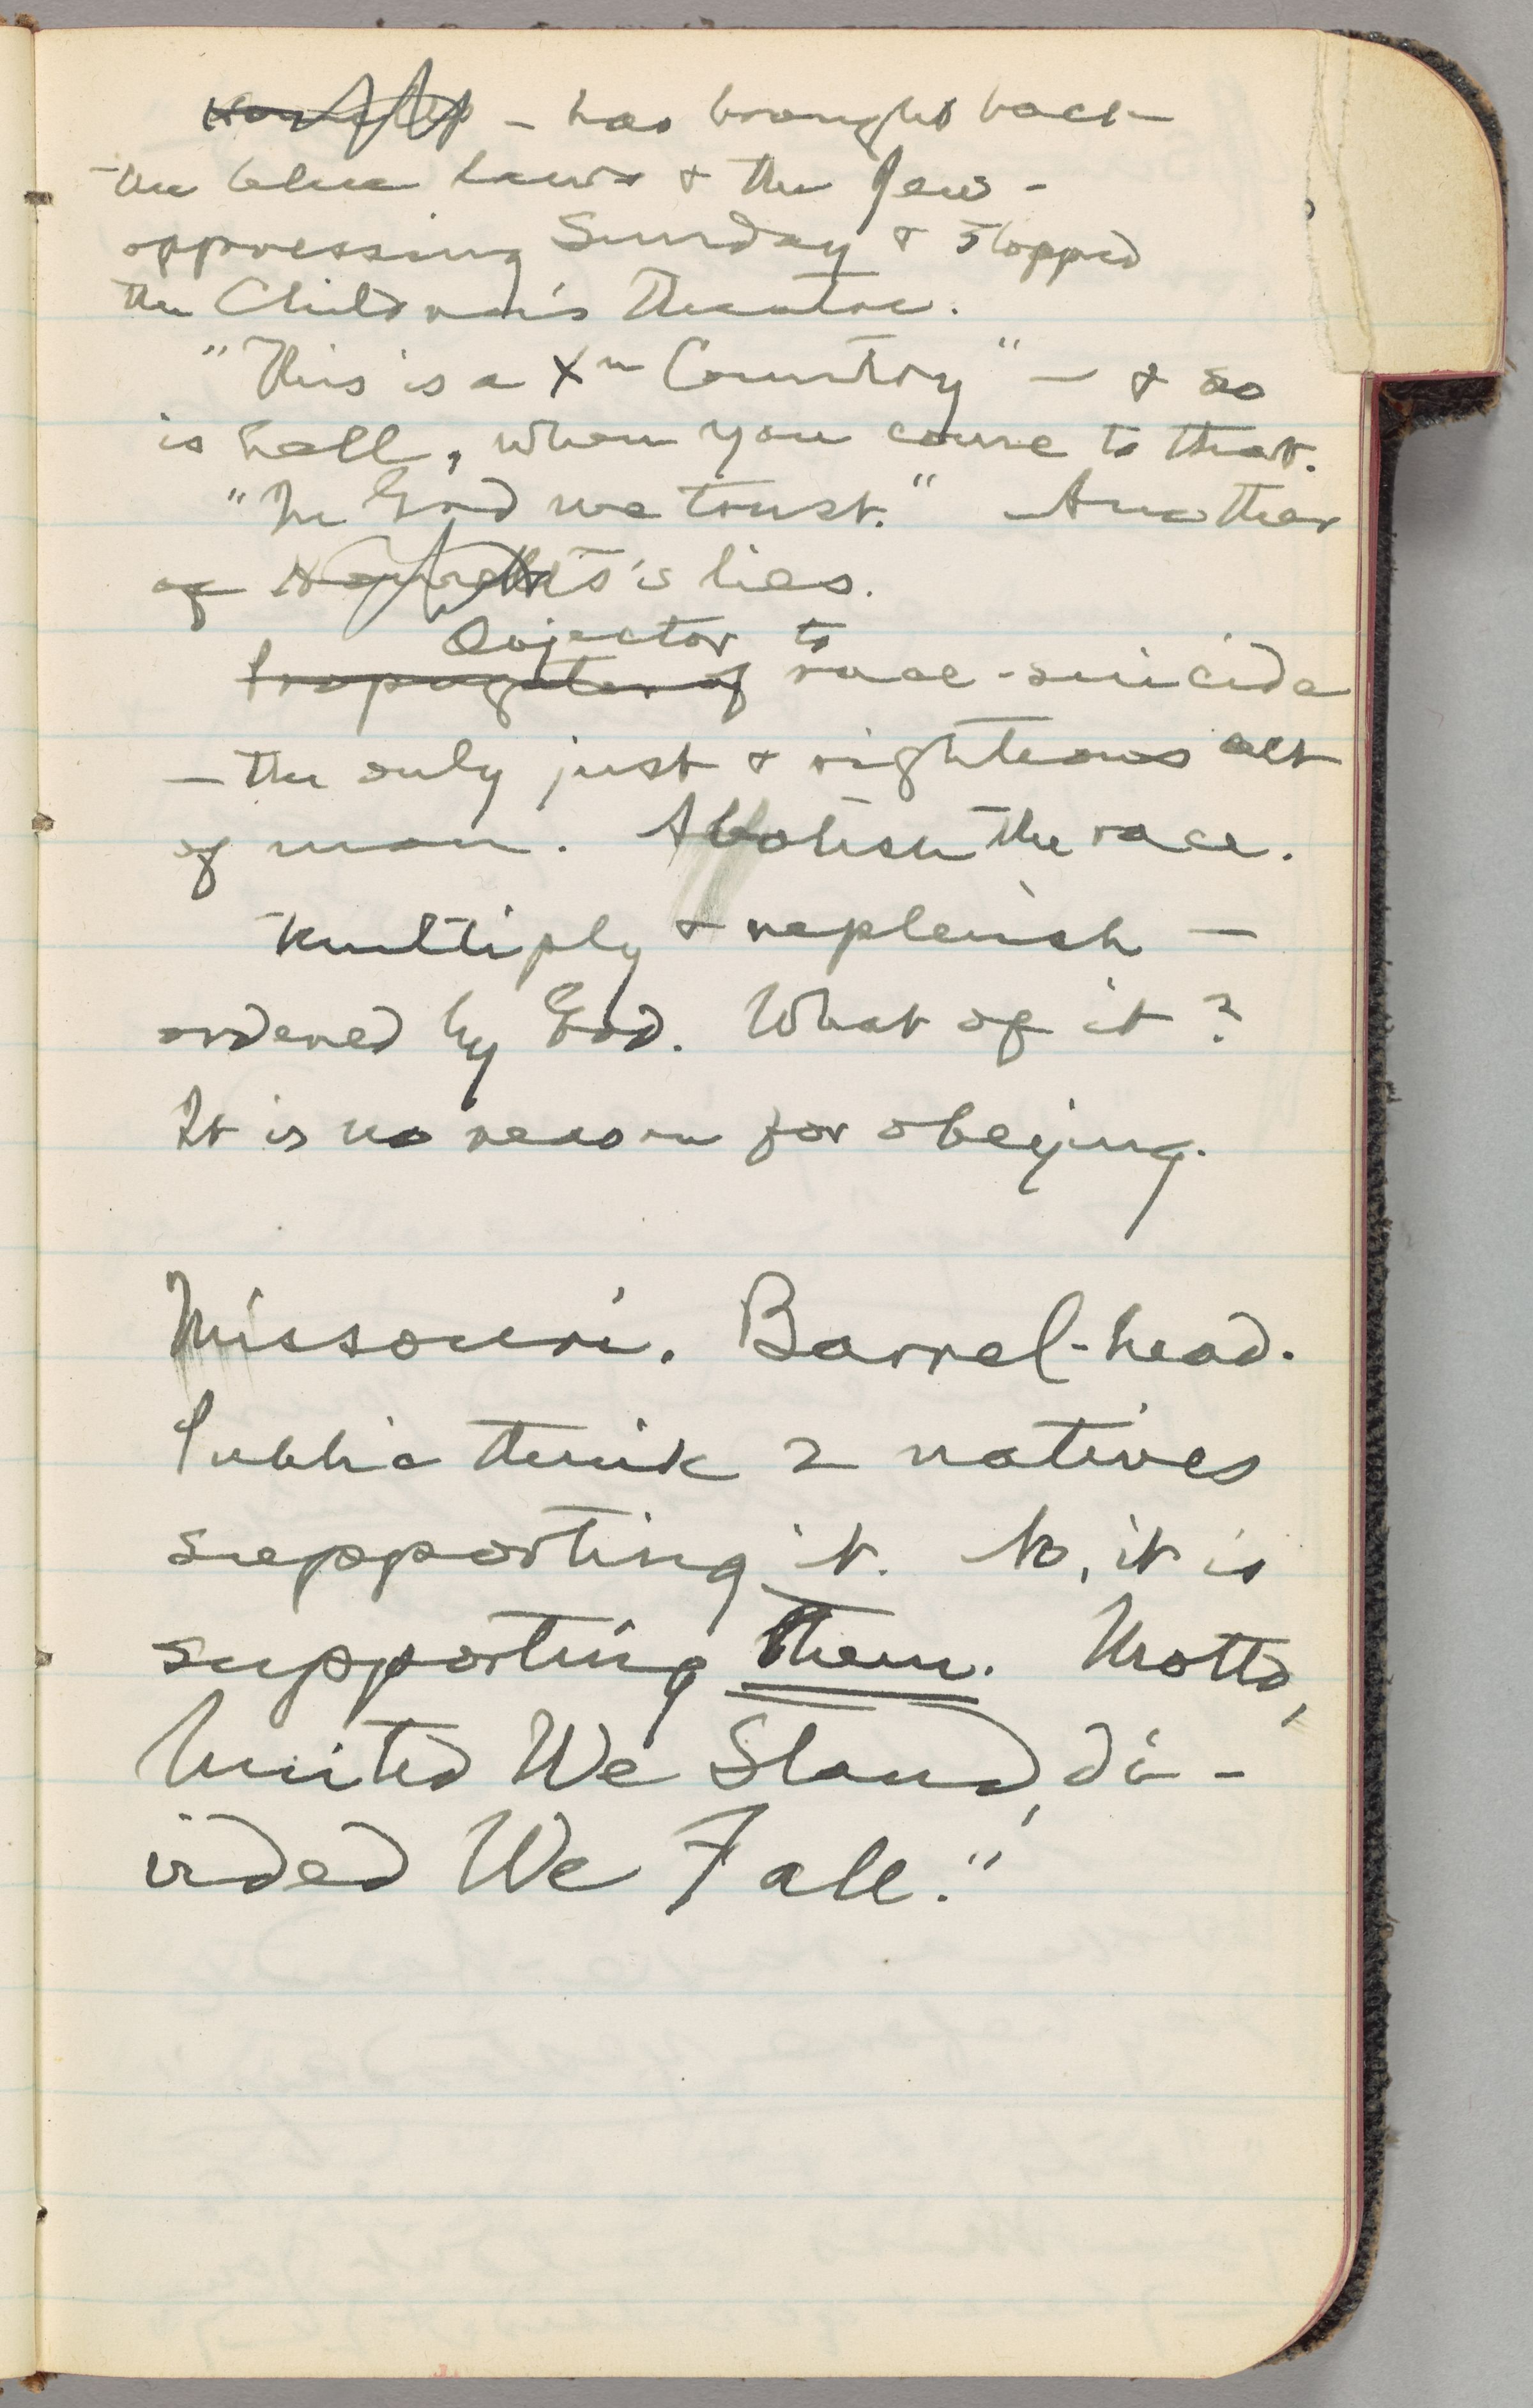 – has brought back
the blue laws & the Jew-
oppressing Sunday & stopped
the Children's Theatre.
"This is a Xn Country" — & so
is hell, when you come to that.
"In God we trust." Another
of lies.
Objector to
Propagator of race-suicide
— the only just & righteous act
of man. Abolish the race.
Multiply & replenish —
ordered by God. What of it?
It is no reason for obeying.
Missouri. Barrel-head.
Public think 2 natives
supporting it. No, it is
supporting them. Motto,
United We Stand, di-
vided We Fall."